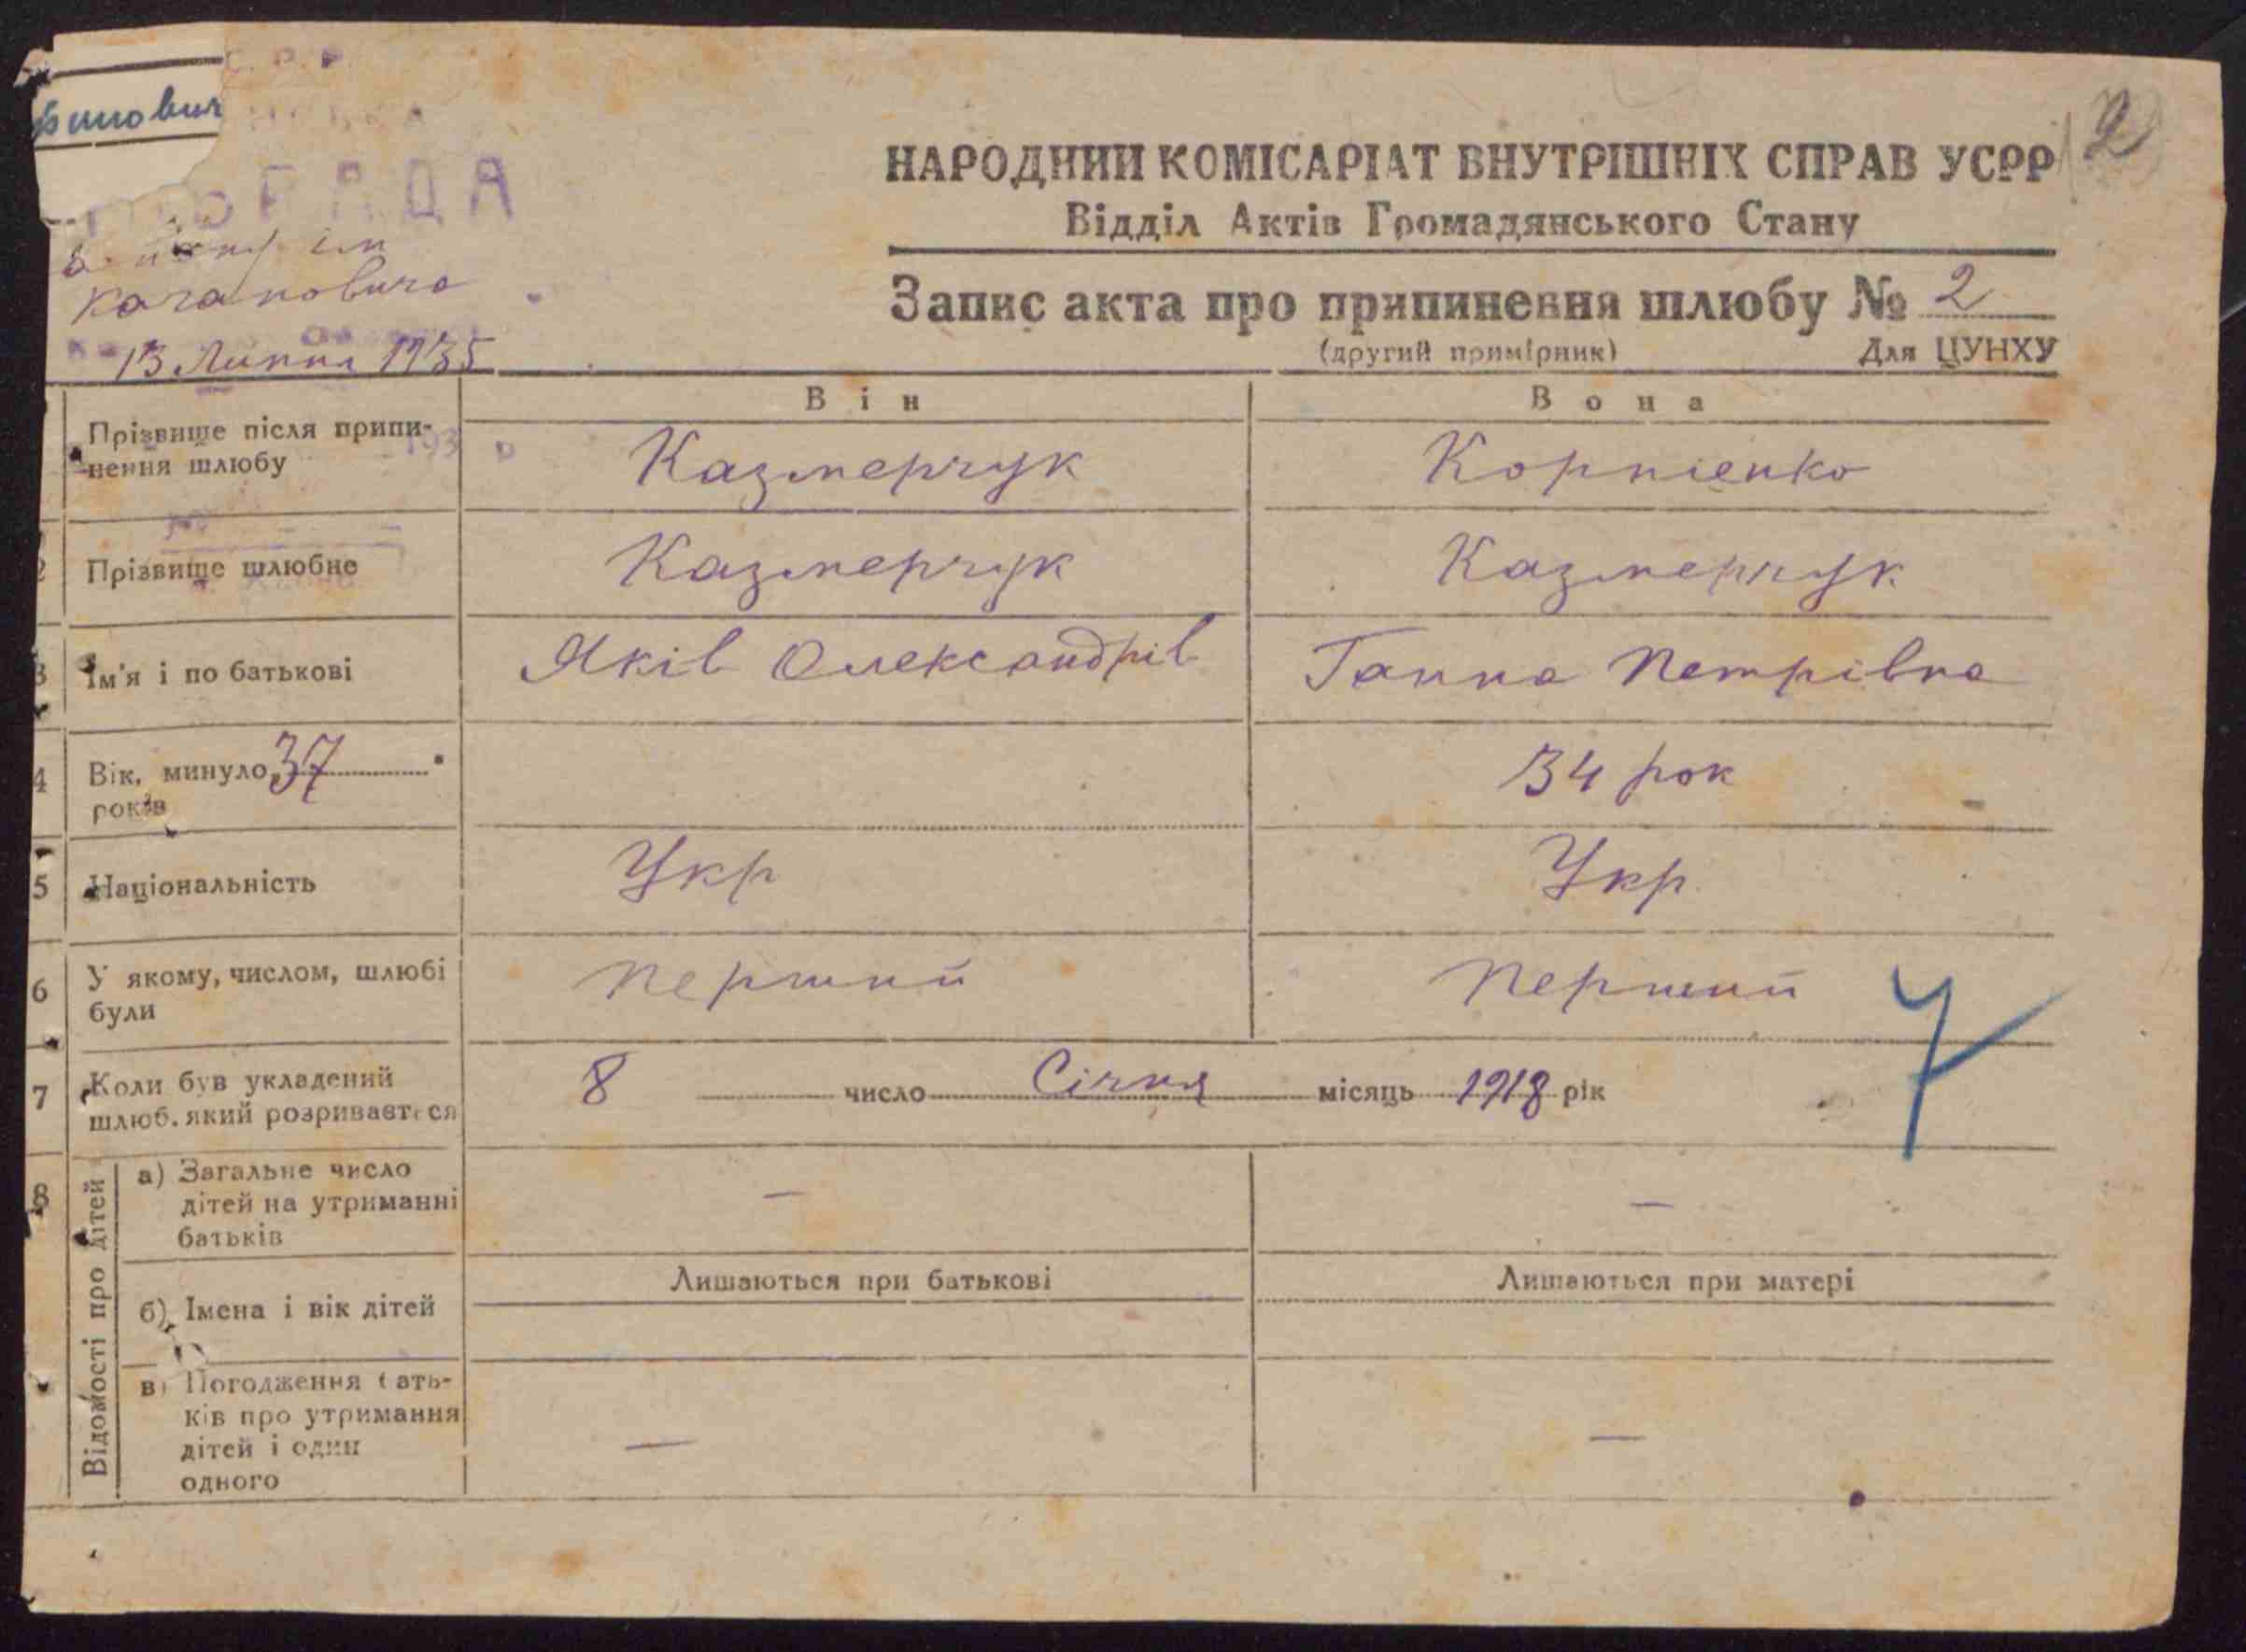 НАРОДНИЙ КОМІСАРІАТ ВНУТРІШНІХ СПРАВ УСРР
2
Відділ Актів Громадянського Стану
Запис акта про припинення шлюбу № 2
(другий примірник) Для ЦУНХУ
РАДА
ім
Кагановича
13 Липня 1935
Він Вона
Прізвище після припи-
нення шлюбу
Казмерчук Корнієнко
2 Прізвище шлюбне Казмерчук Казмерчук
3 Ім'я і по батькові Яків Олександрів Ганна Петрівна
4 Вік, минуло 37
років
34 рок
5 Національність Укр Укр
6 У якому, числом, шлюбі
були
Перший Перший
7 Коли був укладений
шлюб, який розривається
8 число Січня місяць 1918 рік
8 Відомості про дітей
а) Загальне число
дітей на утриманні
батьків
— —
Лишаються при батькові Лишаються при матері
б) Імена і вік дітей
в) Погодження бать-
ків про утримання
дітей і один
одного
— —